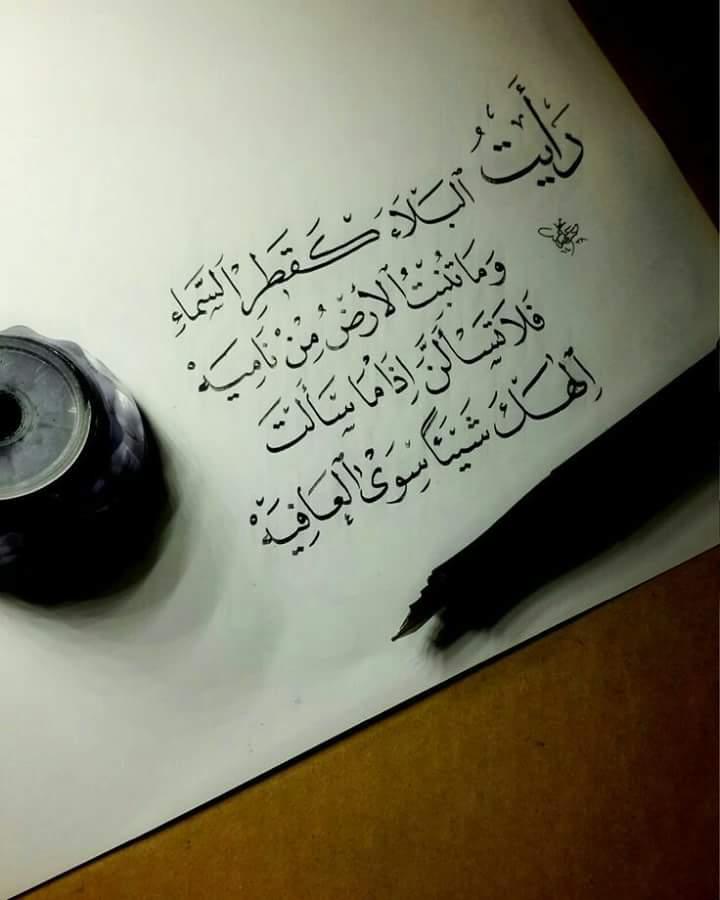 رَأَيتُ البَلَاءَ كَقَطرِ السَّمَاءِ
وَمَا تُنبِتُ الأَرضُ مِنْ نَامِيَهْ
فَلَا تَسْأَلَنَّ إِذَا مَا سَأَلتَ
إِلٰهَكَ شَيْئَاً سِوَىٰ العَافِيَهْ